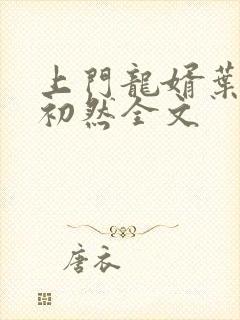 上門龍婿葉
初然全文
唐衣